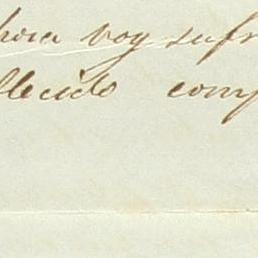 hora voy sufr
llecido comp